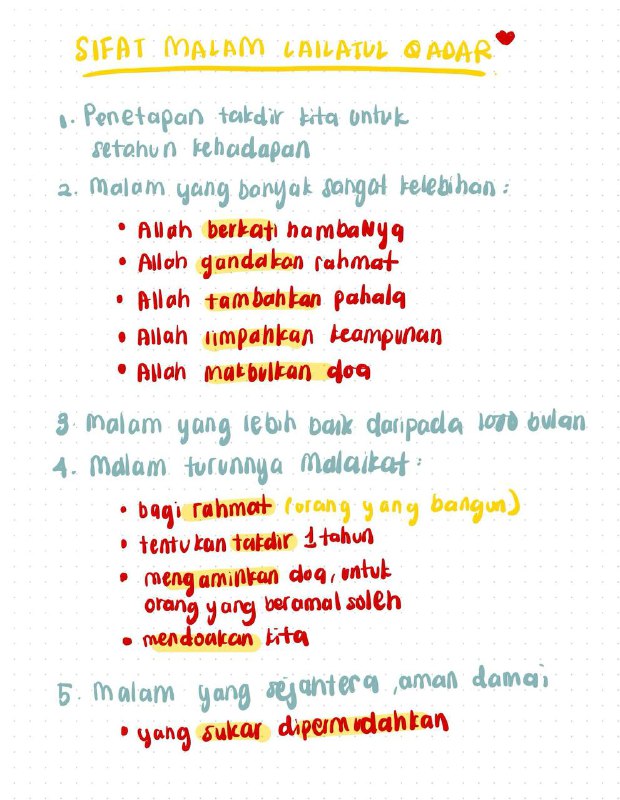 SIFAT MALAM LAILATUL QADAR
1. Penetapan takdir kita untuk
setahun kehadapan
2. Malam yang banyak sangat kelebihan:
• Allah berkati hambaNya
• Allah gandakan rahmat
• Allah tambahkan pahala
• Allah limpahkan keampunan
• Allah makbulkan doa
3. Malam yang lebih baik daripada 1000 bulan
4. Malam turunnya Malaikat:
• bagi rahmat (orang yang bangun)
• tentukan takdir 1 tahun
• mengaminkan doa, untuk
orang yang beramal soleh
• mendoakan kita
5. Malam yang sejahtera, aman damai
• yang sukar dipermudahkan